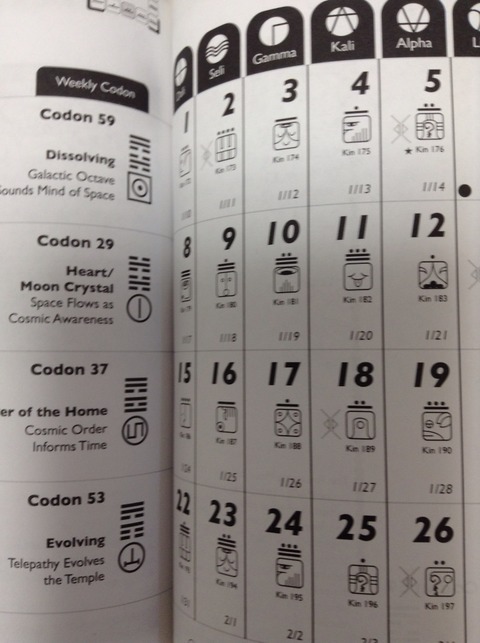 Weekly Codon
Seli
Gamma
Kali
Alpha
L
Codon 59
Dissolving
Galactic Octave
ounds Mind of Space
1
2
3
4
5
Kin 173
Kin 174
Kin 175
★ Kin 176
1/10
1/11
1/12
1/13
1/14
Codon 29
Heart/
Moon Crystal
Space Flows as
Cosmic Awareness
8
9
10
11
12
Kin 180
Kin 181
Kin 182
Kin 183
1/18
1/19
1/20
1/21
Codon 37
er of the Home
Cosmic Order
Informs Time
15
16
17
18
19
Kin 187
Kin 188
Kin 189
Kin 190
1/25
1/26
1/27
1/28
Codon 53
Evolving
Telepathy Evolves
the Temple
22
23
24
25
26
Kin 194
Kin 195
Kin 196
Kin 197
2/1
2/2